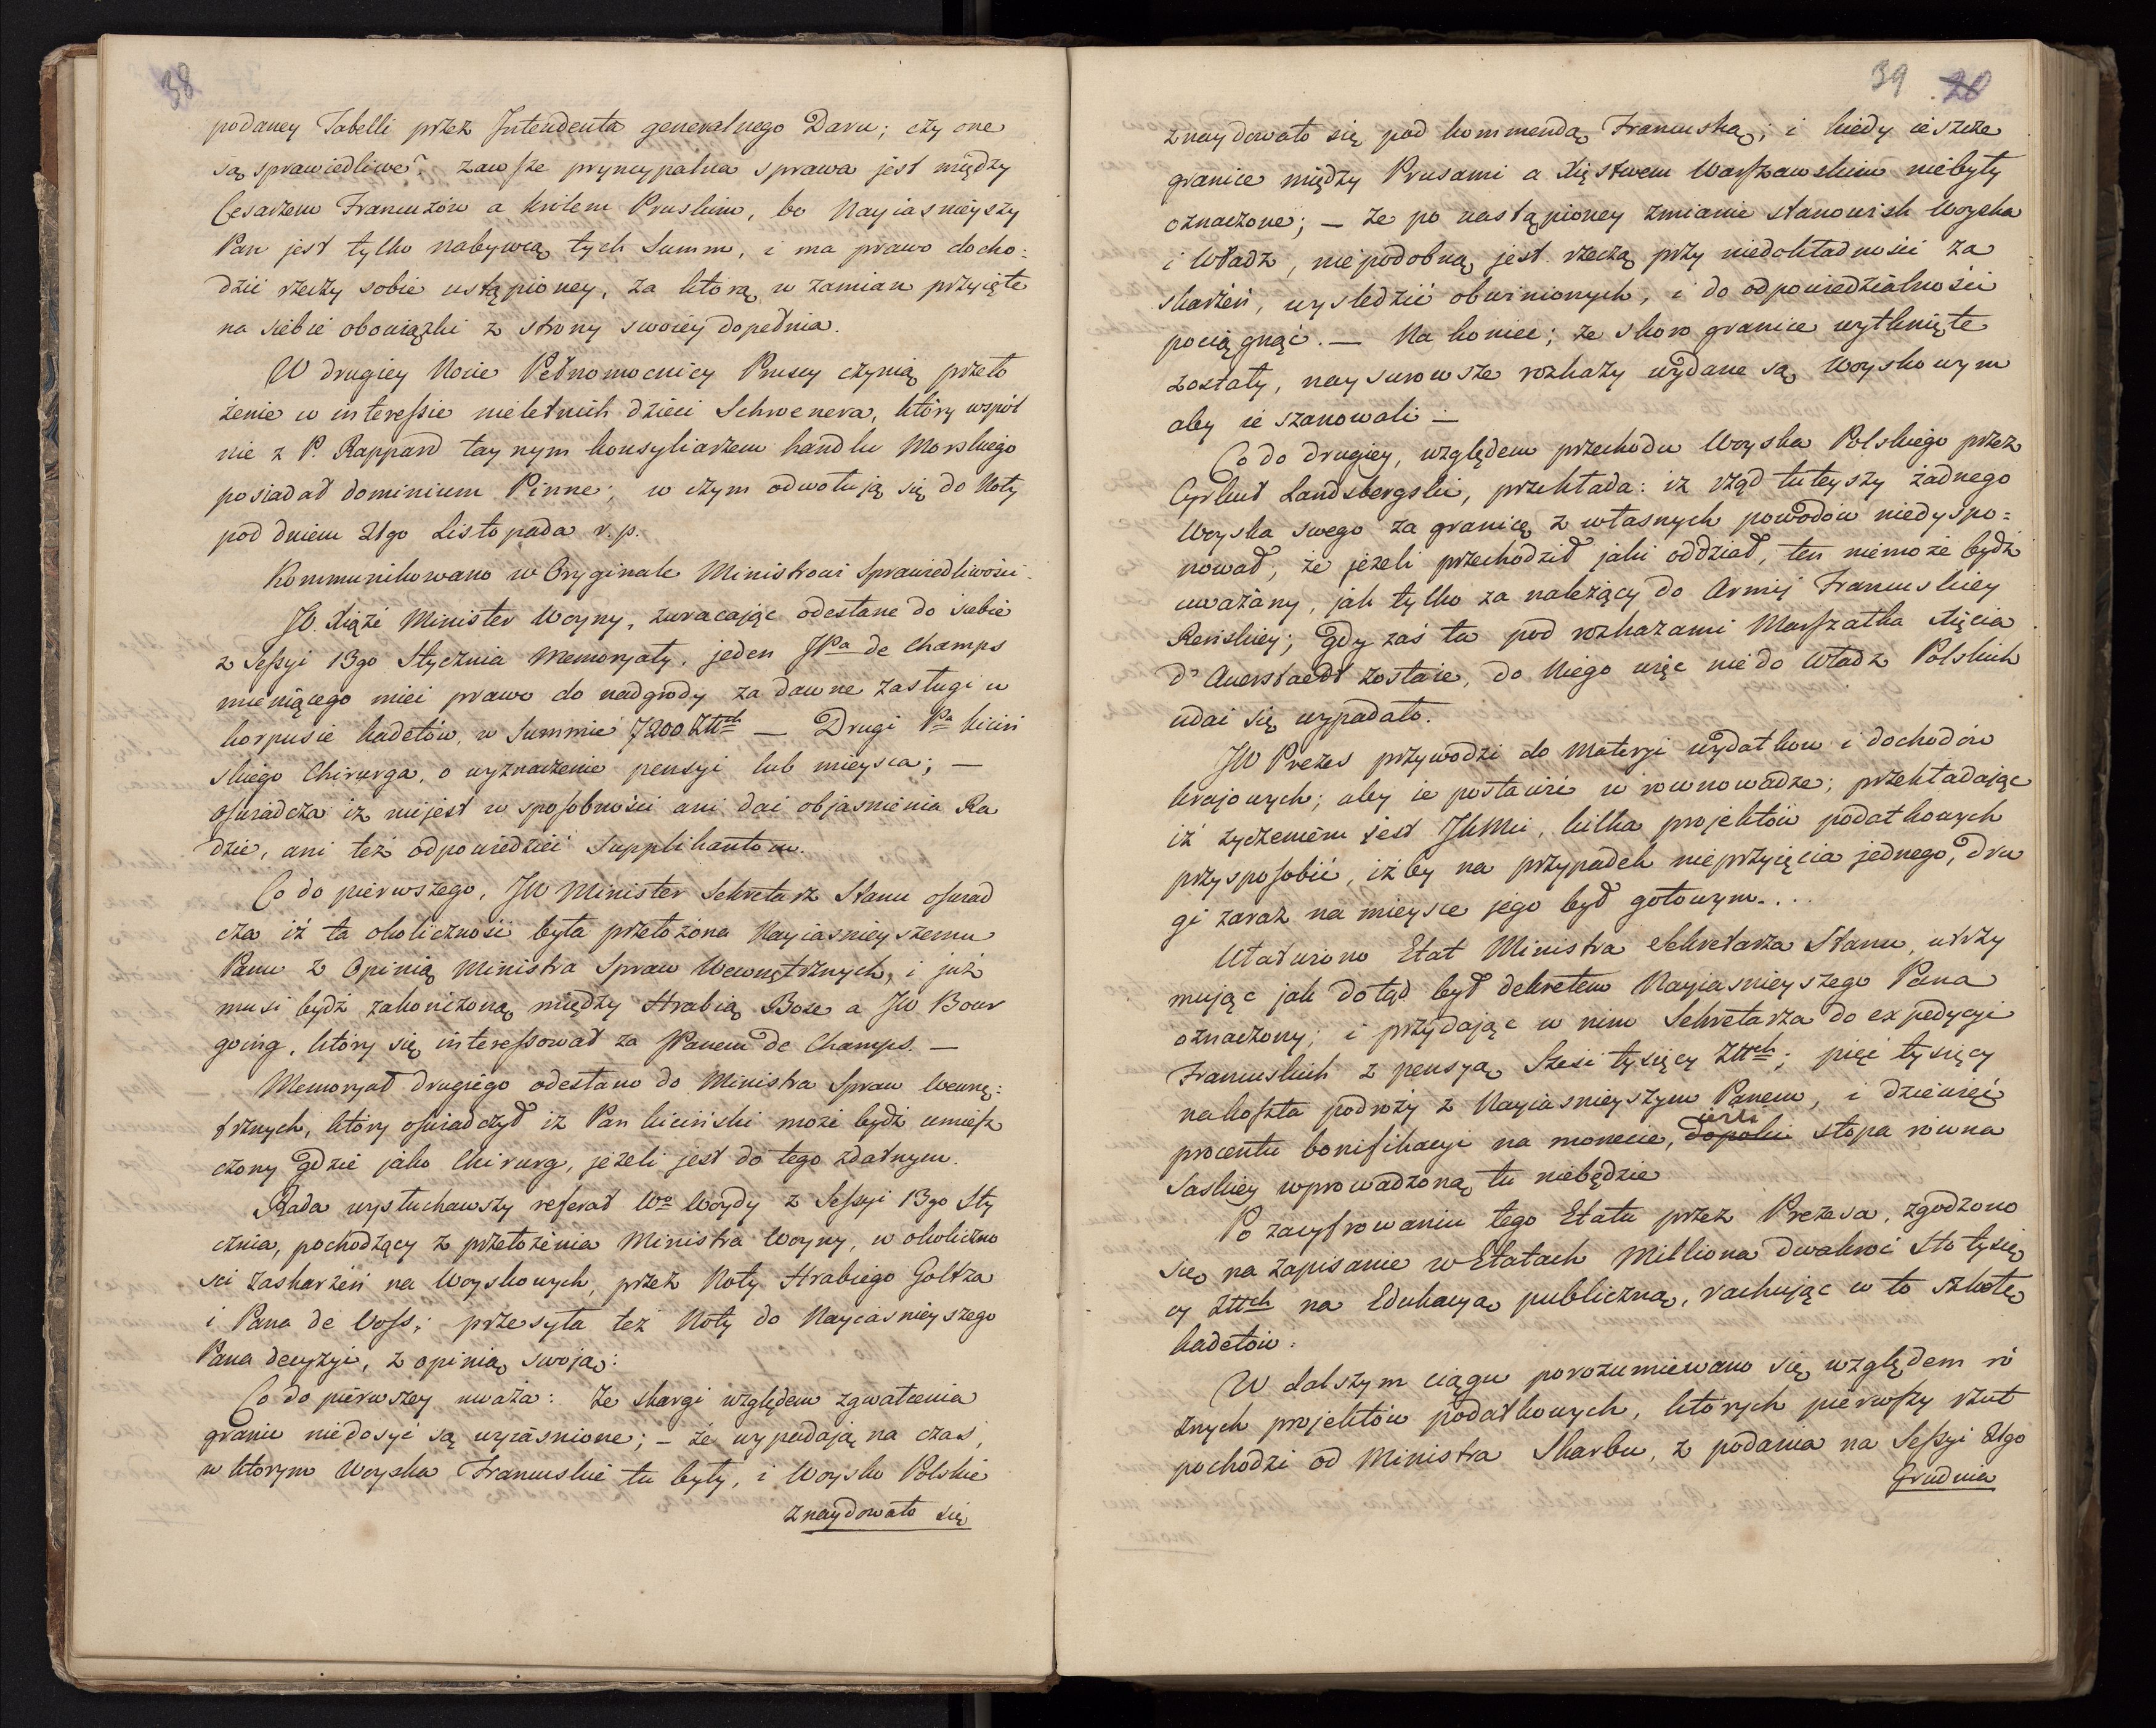 38
podaney Tabelli przez Intendenta generalnego Daru; czy one
są sprawiedliwe? zawsze pryncypalna sprawa jest między
Cesarzem Francuzów a królem Pruskim, bo Nayiasnieyszy
Pan jest tylko nabywcą tych Summ, i ma prawo docho:
dzić rzeczy sobie ustąpioney, za którą w zamian przyięte
na siebie obowiązki z strony swoiey dopełnia.
W drugiey Nocie Pełnomocnicy Pruscy czynią przeło
żenie w interessie nieletnich dzieci Schwenera, który wspól
nie z P. Rappard taynym konsyliarzem handlu Morskiego
posiadał dominium Pinne; w czym odwołują się do Noty
pod dniem 21go Listopada r. p.
Kommunikowano w Oryginale Ministrowi Sprawiedliwości.
JO. Xiąże Minister Woyny, zwracając odesłane do siebie
z Sessyi 13go Stycznia Memoryały, jeden JPa de Champs
mieniącego mieć prawo do nadgrody za dawne zasługi w
korpusie kadetów, w Summie 7200 Złłch — Drugi Pa Kiciń
skiego Chirurga, o wyznaczenie pensyi lub mieysca; —
oświadcza iż niejest w sposobności ani dać objasnienia Ra
dzie, ani też odpowiedzieć Supplikantom.
Co do pierwszego, JW Minister Sekretarz Stanu oświad
cza iż ta okoliczność była przełożona Nayiasnieyszemu
Panu z Opinią Ministra Spraw Wewnętrznych, i już
musi bydź zakończoną między Hrabią Bose a JW Bour
going, który się interessował za JPanem de Champs. —
Memoryał drugiego odesłano do Ministra Spraw Wewnę:
trznych, który oświadczył iż Pan Kiciński może bydź umiesz
czony gdzie jako Chirurg, jeżeli jest do tego zdatnym.
Rada wysłuchawszy referat Wo Woydy z Sessyi 13go Sty
cznia, pochodzący z przełożenia Ministra Woyny, w okoliczno
sci zaskarżeń na Woyskowych, przez Noty Hrabiego Goltza
i Pana de Voss; przesyła też Noty do Nayiasnieyszego
Pana decyzyi, z opinią swoją:
Co do pierwszey uważa: że skargi względem zgwałcenia
granic niedosyć są wyiaśnione; – że wypadają na czas,
w którym Woyska Francuskie tu były, i Woysko Polskie
znaydowało się
39 20
znaydowało się pod kommendą Francuską; i kiedy ieszcze
granice między Prusami a Xięstwem Warszawskim niebyły
oznaczone; – że po nastąpioney zmianie stanowisk Woyska
i Władz, niepodobną jest rzeczą przy niedokładności za
skarżeń, wysledzić obwinionych, i do odpowiedzialności
pociągnąć. — Na koniec; że skoro granice wytknięte
zostały, naysurowsze rozkazy wydane są Woyskowym
aby ie szanowali —
Co do drugiey, względem przechodu Woyska Polskiego przez
Cyrkuł Landsbergski, przekłada: iż rząd tuteyszy żadnego
Woyska swego za granicę z własnych powodów niedyspo=
nował, że jeżeli przechodził jaki oddział, ten niemoże bydź
uważany, jak tylko za należący do Armij Francuskiey
Reńskiey; Gdy zaś ta pod rozkazami Marszałka Xięcia
d'Auerstaedt zostaie, do Niego więc nie do Władz Polskich
udać się wypadało.
JW Prezes przywodzi do Materyi wydatków i dochodów
krajowych; aby ie postawić w rownowadze; przekładając
iż życzeniem jest JKMci, kilka projektów podatkowych
przysposobić, iżby na przypadek nieprzyięcia jednego, dru
gi zaraz na mieysce jego był gotowym....
Ułatwiono Etat Ministra Sekretarza Stanu, utrzy
mując jak dotąd był dekretem Nayiasnieyszego Pana
oznaczony; i przydając w nim Sekretarza do expedycyi
Francuskich z pensyą Sześć tysięcy Złłch; pięć tysięcy
na koszta podroży z Nayiasnieyszym Panem, i dziewięć
procentu bonifikacyi na monecie, dopoki ieśli stopa rowna
Saskiey wprowadzoną tu niebędzie
Po zacyfrowaniu tego Etatu przez Prezesa, zgodzono
się na zapisanie w Etatach Milliona dwakroć sto tysię
cy Złłch na Edukacyą publiczną, rachując w to szkołę
kadetów.
W dalszym ciągu porozumiewano się względem ró
żnych projektów podatkowych, których pierwszy rzut
pochodzi od Ministra Skarbu, z podania na Sessyi 21go
Grudnia